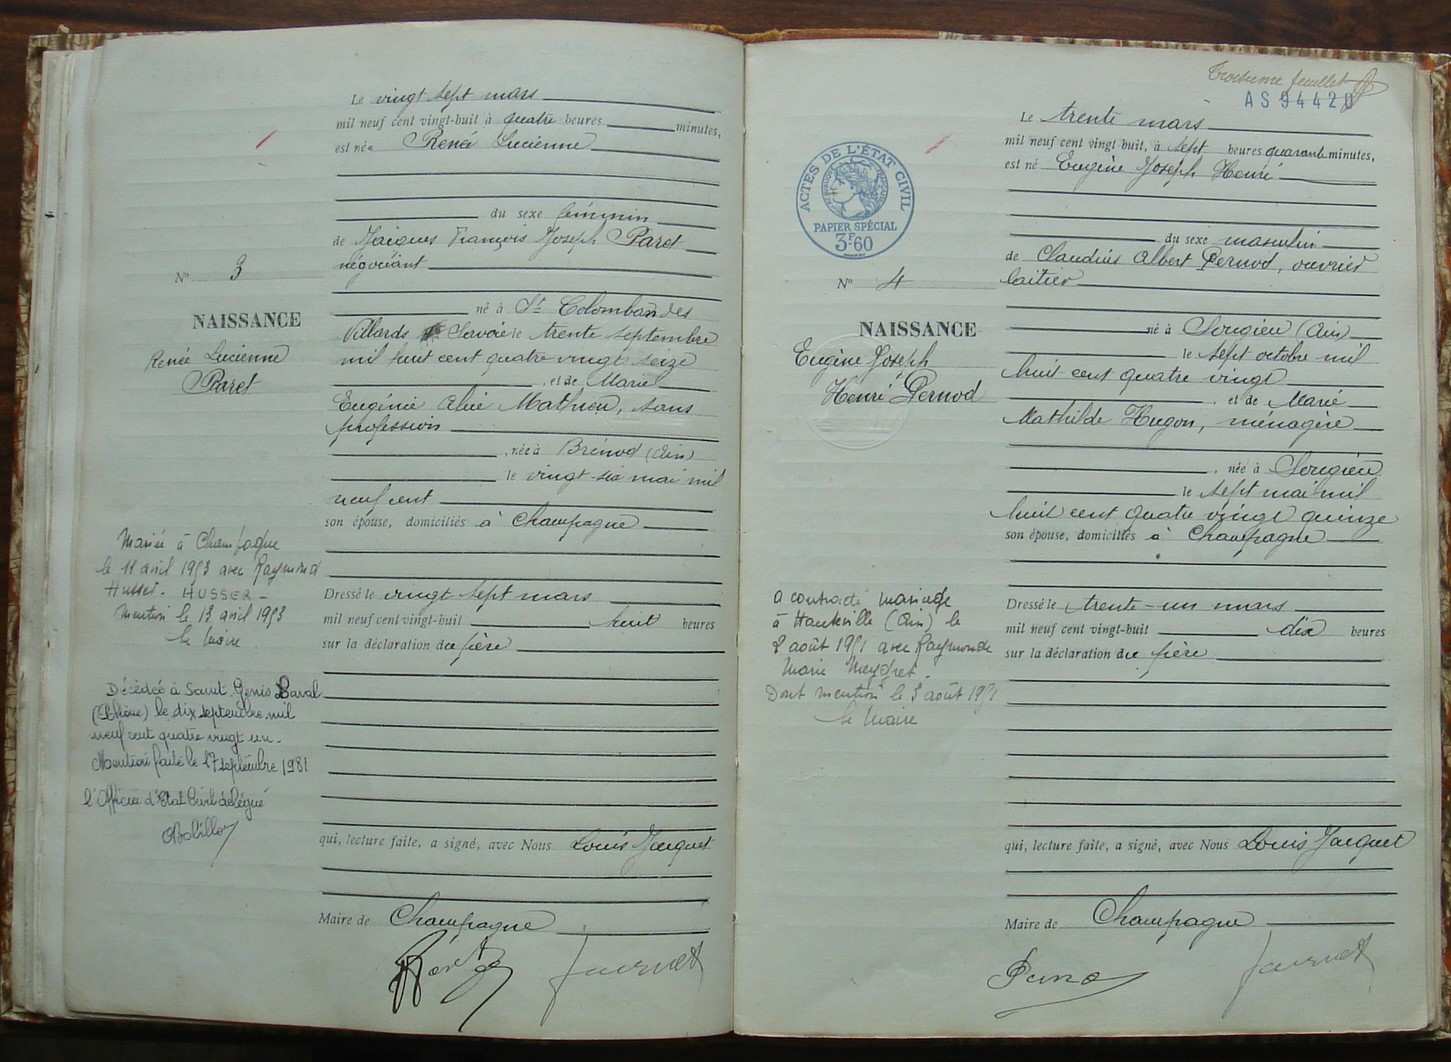 Le vingt sept mars
mil neuf cent vingt-huit à quatre heures minutes,
est née Renée Lucienne
du sexe féminin
de Jacques François Joseph Paret
négociant
N° 3
né à St Colomban des
NAISSANCE
Villards Savoie le trente septembre
Renée Lucienne
mil huit cent quatre vingt seize
Paret
, et de Marie
Eugénie Alice Mathieu, sans
profession
, née à Brénod (Ain)
le vingt-six mai mil
neuf cent
son épouse, domiciliés à Champagne
Mariée à Champagne
le 11 avril 1953 avec Raymond
Husser. HUSSER -
Mention le 13 avril 1953
Le Maire
Dressé le vingt sept mars
mil neuf cent vingt-huit huit heures
sur la déclaration du père
Décédée à Saint Genis Laval
(Rhône) le dix septembre mil
neuf cent quatre vingt un.
Mention faite le 17 septembre 1981
l'Officier d'Etat Civil délégué
qui, lecture faite, a signé, avec Nous Louis Jacquet
Maire de Champagne
Troisième feuillet
AS 94420
Le trente mars
mil neuf cent vingt huit, à sept heures quarante minutes,
est né Eugène Joseph Henri
ACTES DE L'ÉTAT CIVIL
PAPIER SPÉCIAL
3F60
du sexe masculin
de Claudius Albert Pernod, ouvrier
laitier
N° 4
né à Songieu (Ain)
NAISSANCE
le sept octobre mil
Eugène Joseph
huit cent quatre vingt
Henri Pernod
, et de Marie
Mathilde Hugon, ménagère
, née à Songieu
le sept mai mil
huit cent quatre vingt quinze
son épouse, domiciliés à Champagne
a contracté mariage
à Hauteville (Ain) le
2 août 1951 avec Raymonde
Marie Meygret.
Dont mention le 3 août 1951
Le Maire
Dressé le trente-un mars
mil neuf cent vingt-huit dix heures
sur la déclaration du père
qui, lecture faite, a signé, avec Nous Louis Jacquet
Maire de Champagne